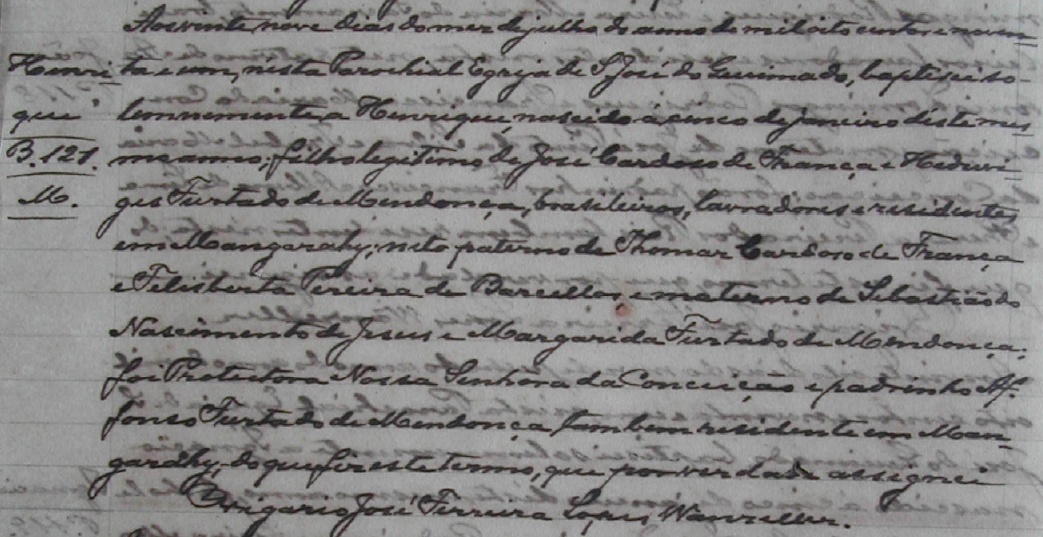 Aos vinte nove dias do mez de julho do anno de mil oito centos e noven=
Henri= ta e um, nésta Parochial Egreja de S José do Queimado, baptisei so-
que lemnemente, a Henrique, nascido á cinco de janeiro déste mes
B. 121. mo anno, filho legitimo, de José Cardoso de França e Heduvi=
M. ges Furtado de Mendonça, brasileiros, lavradores e residentes
em Mangarahy; neto paterno de Thomaz Cardoso de França
e Felisberta Pereira de Barcellos, e materno de Sebastião do
Nascimento de Jesus e Margarida Furtado de Mendonça;
foi Protectora Nossa Senhora da Conceição e padrinho Af-
fonso Furtado de Mendonça tambem residente em Man-
garahy, do que fiz este termo, que por verdade assignei
Vigario José Ferreira Lopes Wanzeller.